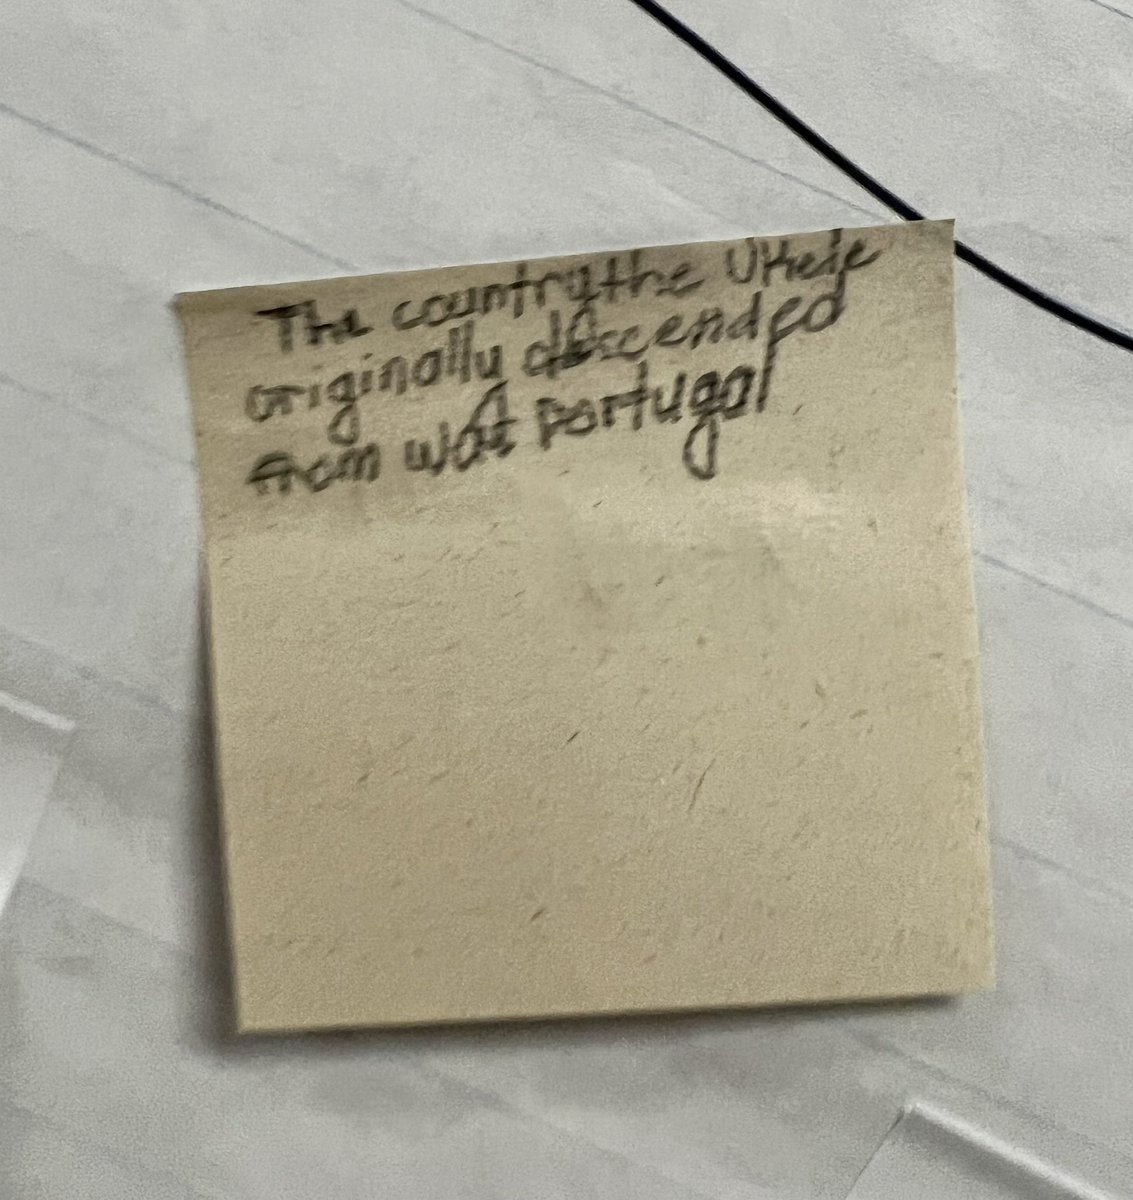 The country the Ukele
originally descended
from was portugal